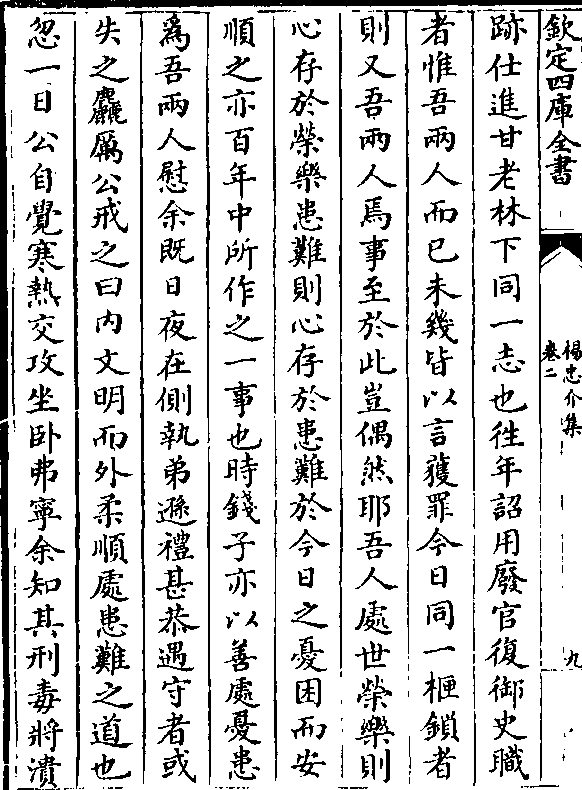 欽定四庫全書
楊忠介集
卷二
九
跡仕進甘老林下同一志也徃年詔用廢官復御史職
者惟吾兩人而已未幾皆以言獲罪今日同一柙鎖者
則又吾兩人焉事至於此豈偶然耶吾人處世榮樂則
心存於榮樂患難則心存於患難於今日之憂困而安
順之亦百年中所作之一事也時錢子亦以善處憂患
為吾兩人慰余既日夜在側執弟遜禮甚恭遇守者或
失之麤厲公戒之曰内文明而外柔順處患難之道也
忽一日公自覺寒熱交攻坐卧弗寧余知其刑毒將潰